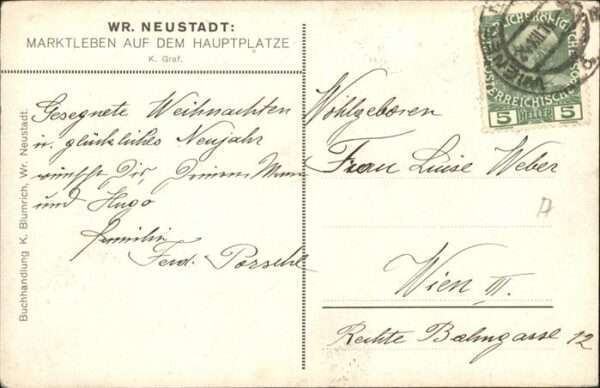 WR. NEUSTADT:
MARKTLEBEN AUF DEM HAUPTPLATZE
K. Graf.
Gesegnete Weihnachten
u. glückliches Neujahr
wünscht Dir, Deinem Mann
und Hugo
Familie
Ferd. Porsche
Buchhandlung K. Blumrich, Wr. Neustadt.
Wohlgeboren
Frau Luise Weber
Wien III.
Rechte Bahngasse 12
5 HELLER 5
WIENER